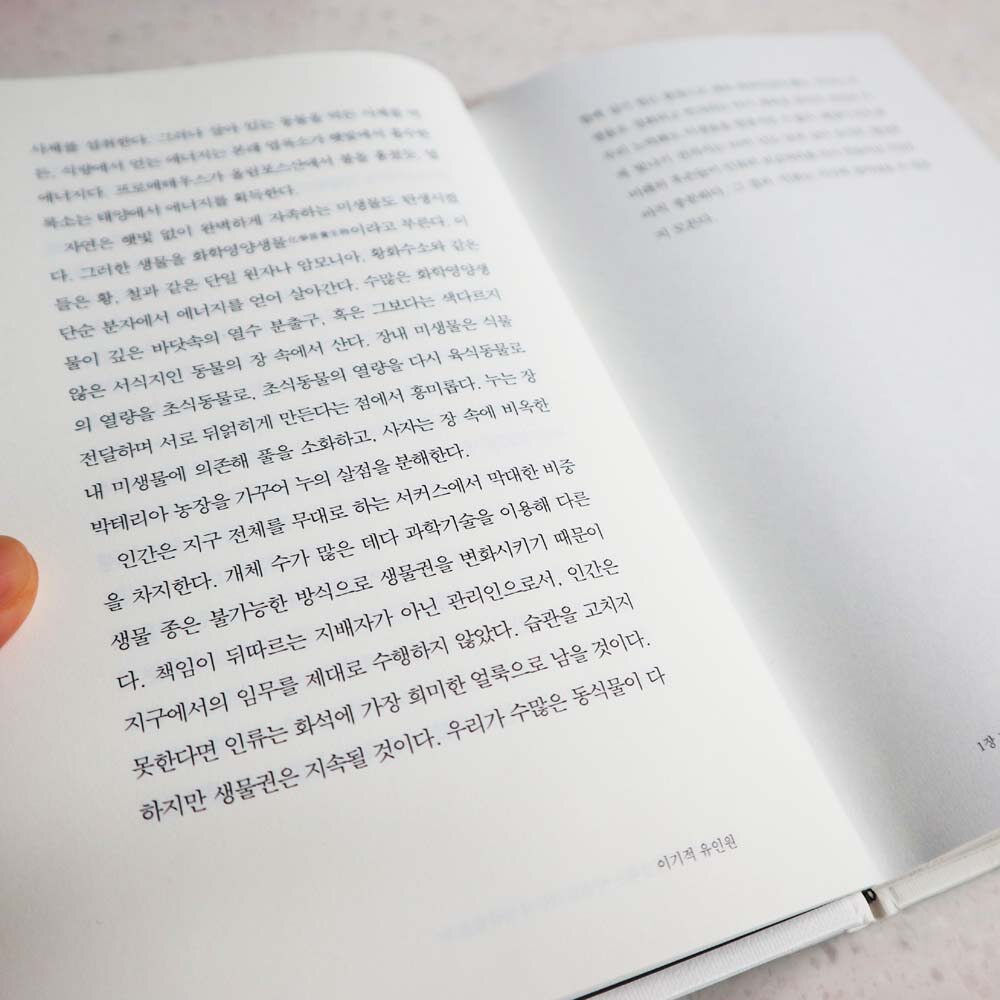 사체를 섭취한다. 그러나 살아 있는 동물을 먹든 사체를 먹
든, 식량에서 얻는 에너지는 본래 엽록소가 햇빛에서 흡수한
에너지다. 프로메테우스가 올림포스산에서 불을 훔쳤듯, 엽
록소는 태양에서 에너지를 획득한다.
자연은 햇빛 없이 완벽하게 자족하는 미생물도 탄생시켰
다. 그러한 생물을 화학영양생물이라고 부른다. 이
들은 황, 철과 같은 단일 원자나 암모니아, 황화수소와 같은
단순 분자에서 에너지를 얻어 살아간다. 수많은 화학영양생
물이 깊은 바닷속의 열수 분출구, 혹은 그보다는 색다르지
않은 서식지인 동물의 장 속에서 산다. 장내 미생물은 식물
의 열량을 초식동물로, 초식동물의 열량을 다시 육식동물로
전달하며 서로 뒤얽히게 만든다는 점에서 흥미롭다. 누는 장
내 미생물에 의존해 풀을 소화하고, 사자는 장 속에 비옥한
박테리아 농장을 가꾸어 누의 살점을 분해한다.
인간은 지구 전체를 무대로 하는 서커스에서 막대한 비중
을 차지한다. 개체 수가 많은 데다 과학기술을 이용해 다른
생물 종은 불가능한 방식으로 생물권을 변화시키기 때문이
다. 책임이 뒤따르는 지배자가 아닌 관리인으로서, 인간은
지구에서의 임무를 제대로 수행하지 않았다. 습관을 고치지
못한다면 인류는 화석에 가장 희미한 얼룩으로 남을 것이다.
하지만 생물권은 지속될 것이다. 우리가 수많은 동식물이 다
이기적 유인원
지 모른다.
1장